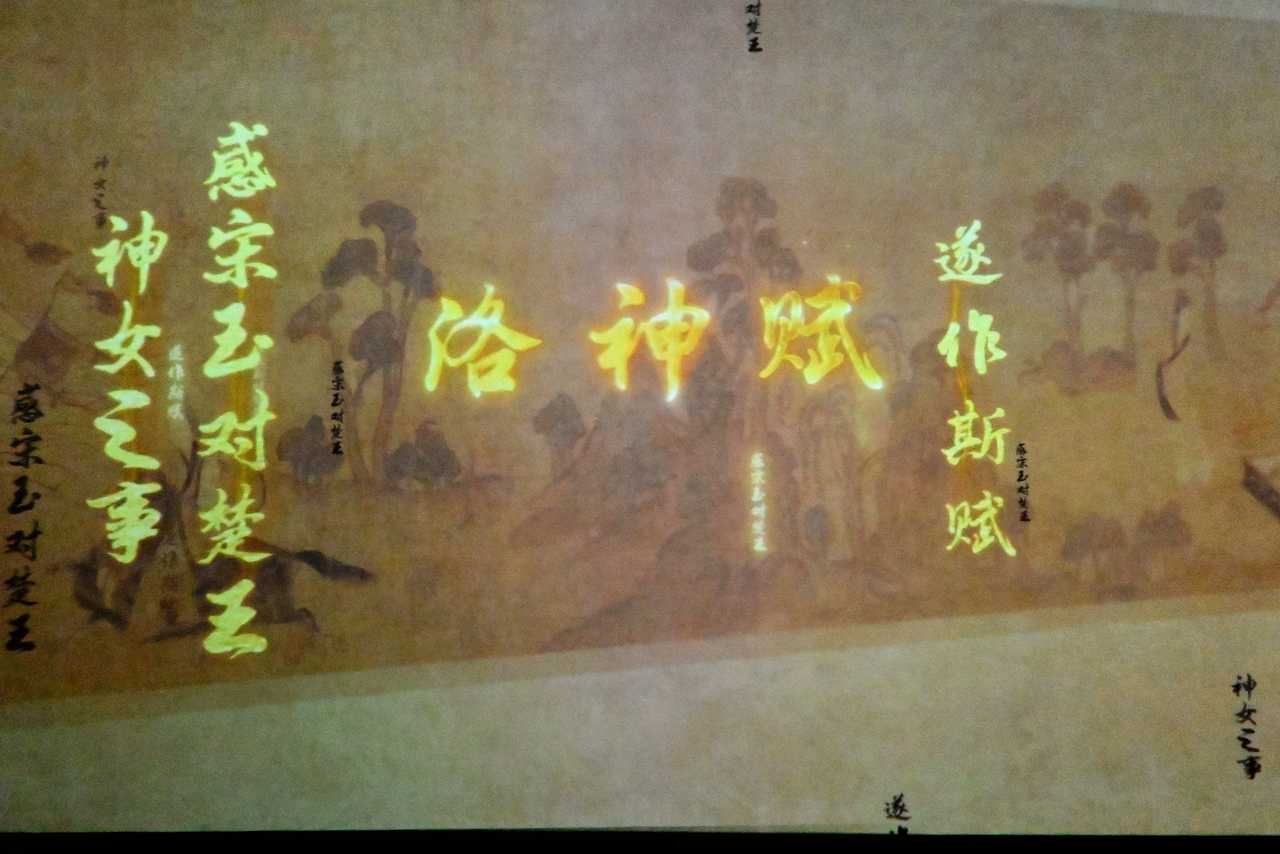 感宋玉对楚王
神女之事
洛神赋
遂作斯赋
对楚王
神女之事
感宋玉对楚王
感宋玉对楚王
感宋玉对楚王
感宋玉对楚王
神女之事
遂